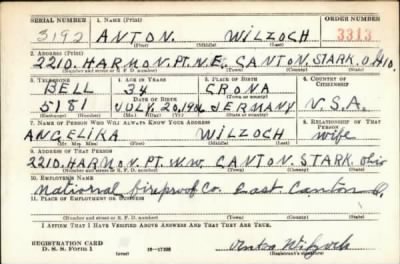 SERIAL NUMBER 1. NAME (Print) ORDER NUMBER
3192 ANTON. WILZOCH 3313
(First) (Middle) (Last)
2. ADDRESS (Print)
2210. HARMON. PT. N.E. CANTON. STARK. OHIO.
(Number and street or R. F. D. number) (Town) (County) (State)
3. TELEPHONE 4. AGE IN YEARS 5. PLACE OF BIRTH 6. COUNTRY OF CITIZENSHIP
BELL 34 GRONA
DATE OF BIRTH
5181 JULY. 20. GERMANY U.S.A.
(Exchange) (Number) (Mo.) (Day) (Yr.) (State or country)
7. NAME OF PERSON WHO WILL ALWAYS KNOW YOUR ADDRESS 8. RELATIONSHIP OF THAT PERSON
ANGELIKA WILZOCH wife
(Mr. Mrs. Miss) (First) (Middle) (Last)
9. ADDRESS OF THAT PERSON
2210. HARMON. PT. CANTON. STARK. Ohio
(Number and street or R. F. D. number) (Town) (County) (State)
10. EMPLOYER'S NAME
National fireproof Co. East. Canton O.
11. PLACE OF EMPLOYMENT OR BUSINESS
(Number and street or R. F. D. number) (Town) (County) (State)
I AFFIRM THAT I HAVE VERIFIED ABOVE ANSWERS AND THAT THEY ARE TRUE.
REGISTRATION CARD
D. S. S. FORM 1 (over) 16—17105 (Registrant's signature)